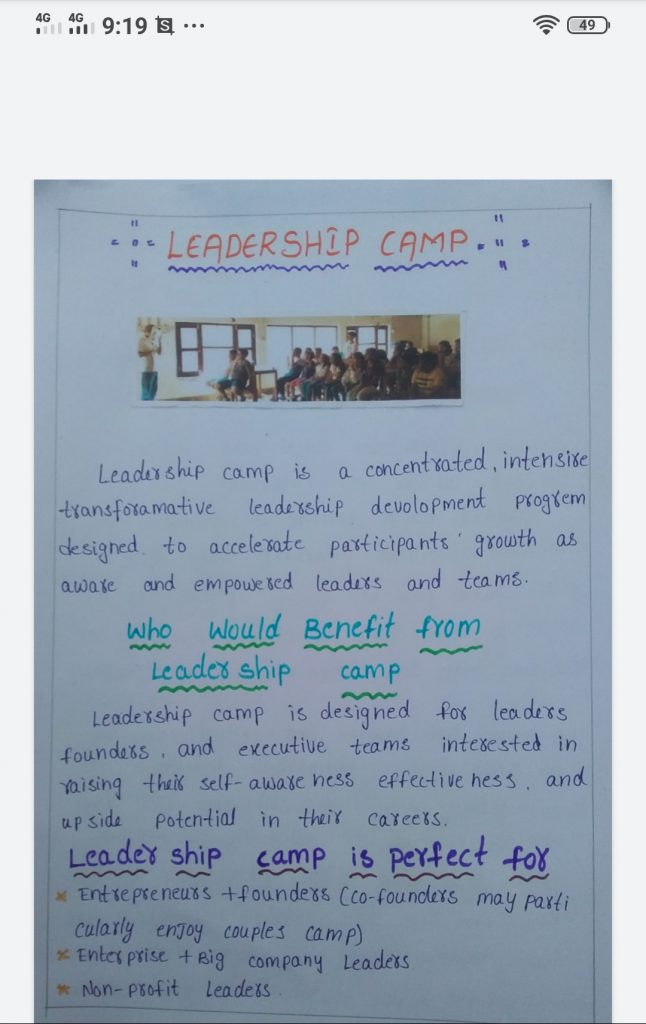 4G 4G 9:19 S ... 49
LEADERSHIP CAMP
Leadership camp is a concentrated, intensive
transforamative leadership devolopment progrem
designed to accelerate participants' growth as
aware and empowered leaders and teams.
Who Would Benefit from
Leadership camp
Leadership camp is designed for leaders
founders, and executive teams interested in
raising their self-awareness effectiveness, and
upside potential in their careers.
Leadership camp is perfect for
Entrepreneurs + founders (co-founders may parti
cularly enjoy couples camp)
Enterprise + Big company Leaders
Non-profit Leaders.